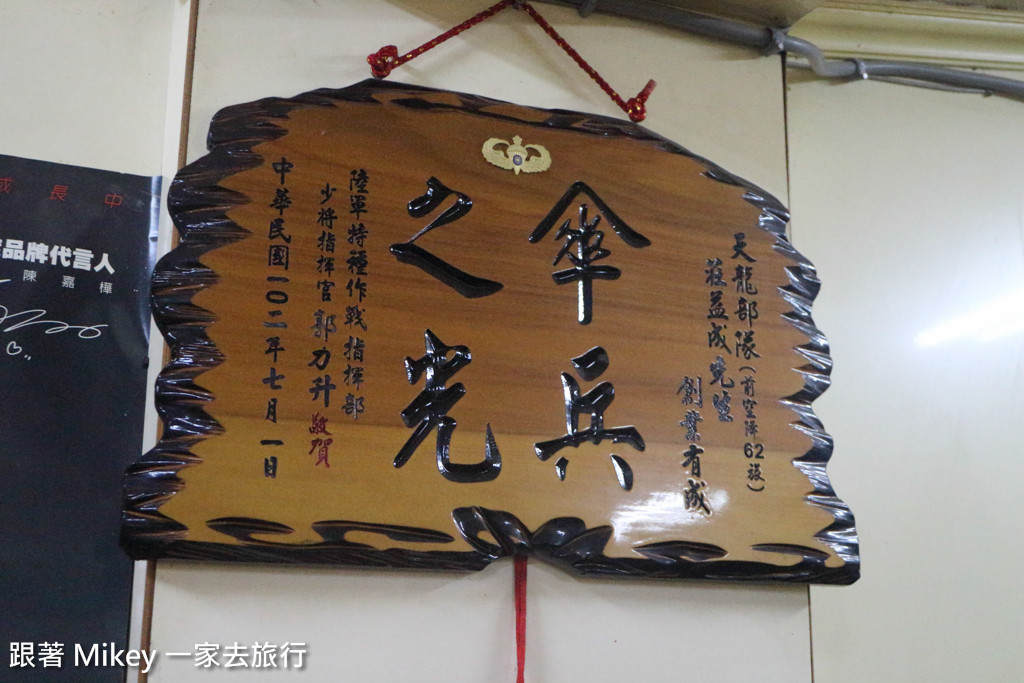 天龍部隊(前空降62旅)
莊益成先生
創業有成
傘兵
之光
陸軍特種作戰指揮部
少將指揮官 郭力升 敬賀
中華民國一0二年七月一日
成長中
品牌代言人
陳嘉樺
跟著 Mikey 一家去旅行